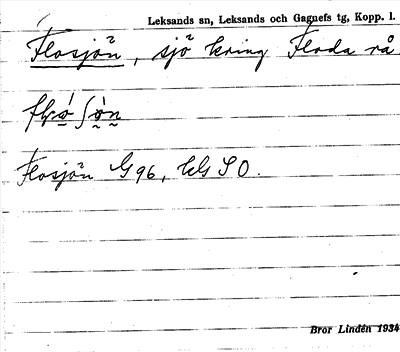 Leksands sn, Leksands och Gagnefs tg, Kopp. l.
Flosjön, sjö kring Floda rå
Flosjön G96, kG SO.
Bror Lindén 1934